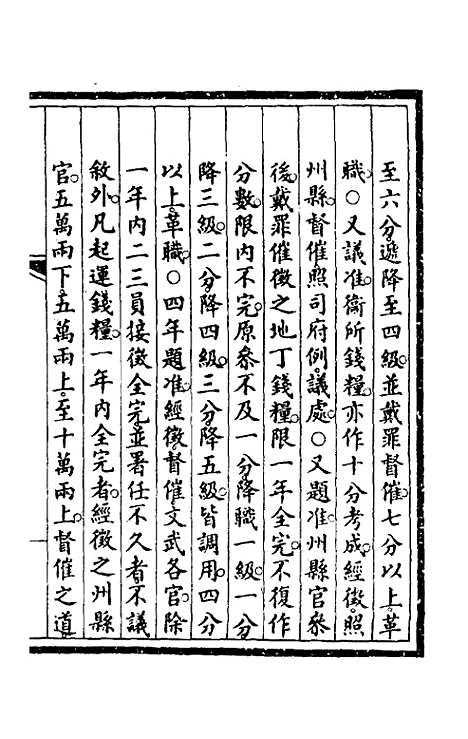 至六分。遞降至四級。並戴罪督催。七分以上。革
職。○又議准。衞所錢糧。亦作十分考成。經徵。照
州縣。督催。照司府例。議處。○又題准。州縣官參
後。戴罪催徵之地丁錢糧。限一年全完。不復作
分數。限內不完。原參不及一分。降職一級。一分。
降三級。二分降四級。三分降五級。皆調用。四分
以上。革職。○四年題准。經徵督催文武各官。除
一年內二三員接徵全完。並署任不久者不議
敘外。凡起運錢糧。一年內全完者。經徵之州縣
官。五萬兩下。五萬兩上。至十萬兩上。督催之道